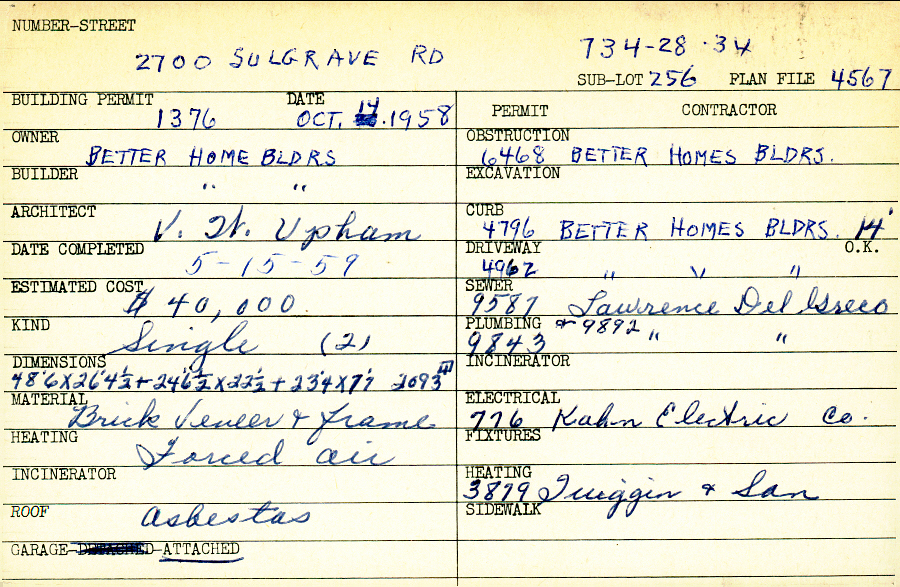 NUMBER-STREET
2700 SULGRAVE RD
734-28-34
SUB-LOT 256 PLAN FILE 4567
BUILDING PERMIT 1376 DATE OCT. 14 1958
OWNER BETTER HOME BLDRS
BUILDER " "
ARCHITECT V. W. Upham
DATE COMPLETED 5-15-59
ESTIMATED COST $ 40,000
KIND Single (2)
DIMENSIONS
48'6 X 26'4½ + 24'6½ X 22½ + 23'4 X 7'7 2093
MATERIAL Brick Veneer & frame
HEATING Forced air
INCINERATOR
ROOF asbestas
GARAGE-DETACHED-ATTACHED
PERMIT CONTRACTOR
OBSTRUCTION
6468 BETTER HOMES BLDRS.
EXCAVATION
CURB
4796 BETTER HOMES BLDRS. 14'
DRIVEWAY O.K.
4962 " " "
SEWER
9587 Lawrence Del Greco
PLUMBING & 9892 " "
9843
INCINERATOR
ELECTRICAL
776 Kahn Electric Co.
FIXTURES
HEATING
3879 Quiggin & Son
SIDEWALK